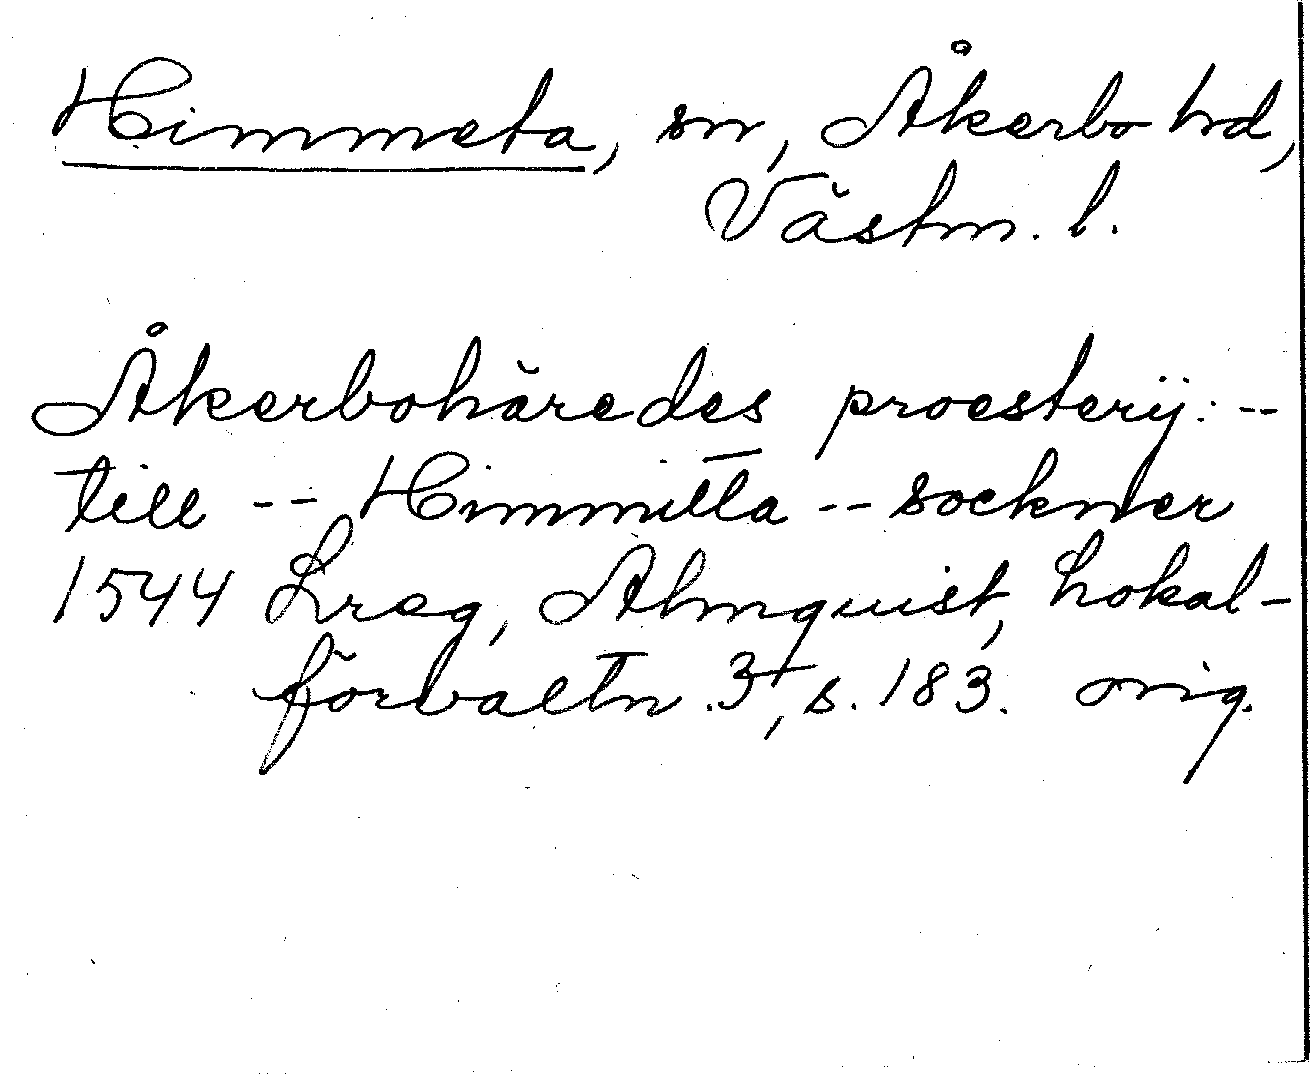 Himmeta, sn, Åkerbo hd,
Västm. l.
Åkerbohäredes proesterij: --
till -- Himmitta -- sockner
1544 Lreg, Almquist, Lokal-
förvaltn. 3, s. 183. orig.